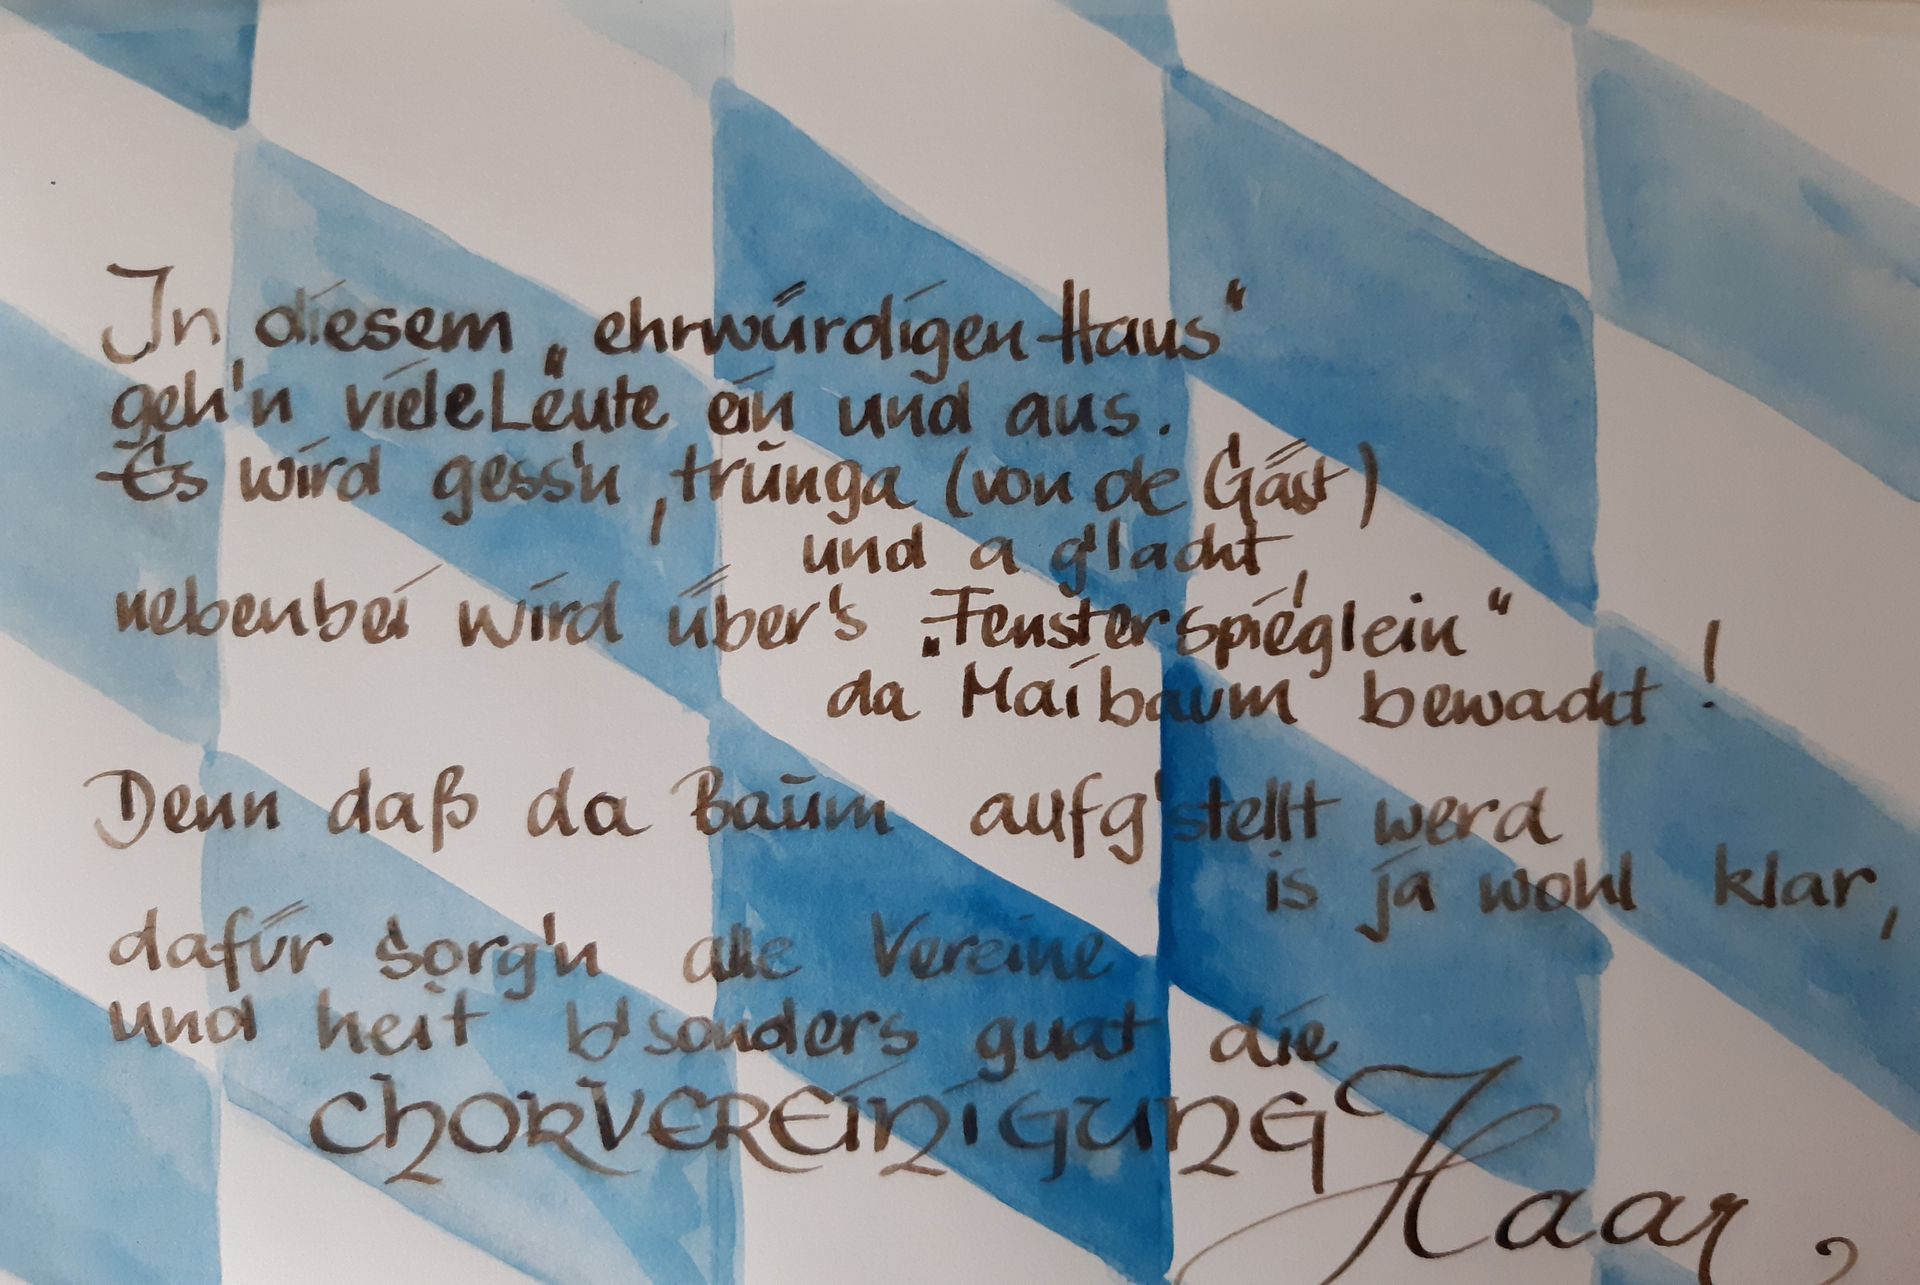 In diesem „ehrwürdigen Haus“
geh'n viele Leute ein und aus.
Es wird gess'n, trunga (von de Gäst)
und a g'lacht,
nebenbei wird über's „Fensterspieglein“
da Maibaum bewacht!
Denn daß da Baum aufg'stellt werd
is ja wohl klar,
dafür sorg'n alle Vereine
und heit b'sonders guat die
CHORVEREINIGUNG Haar